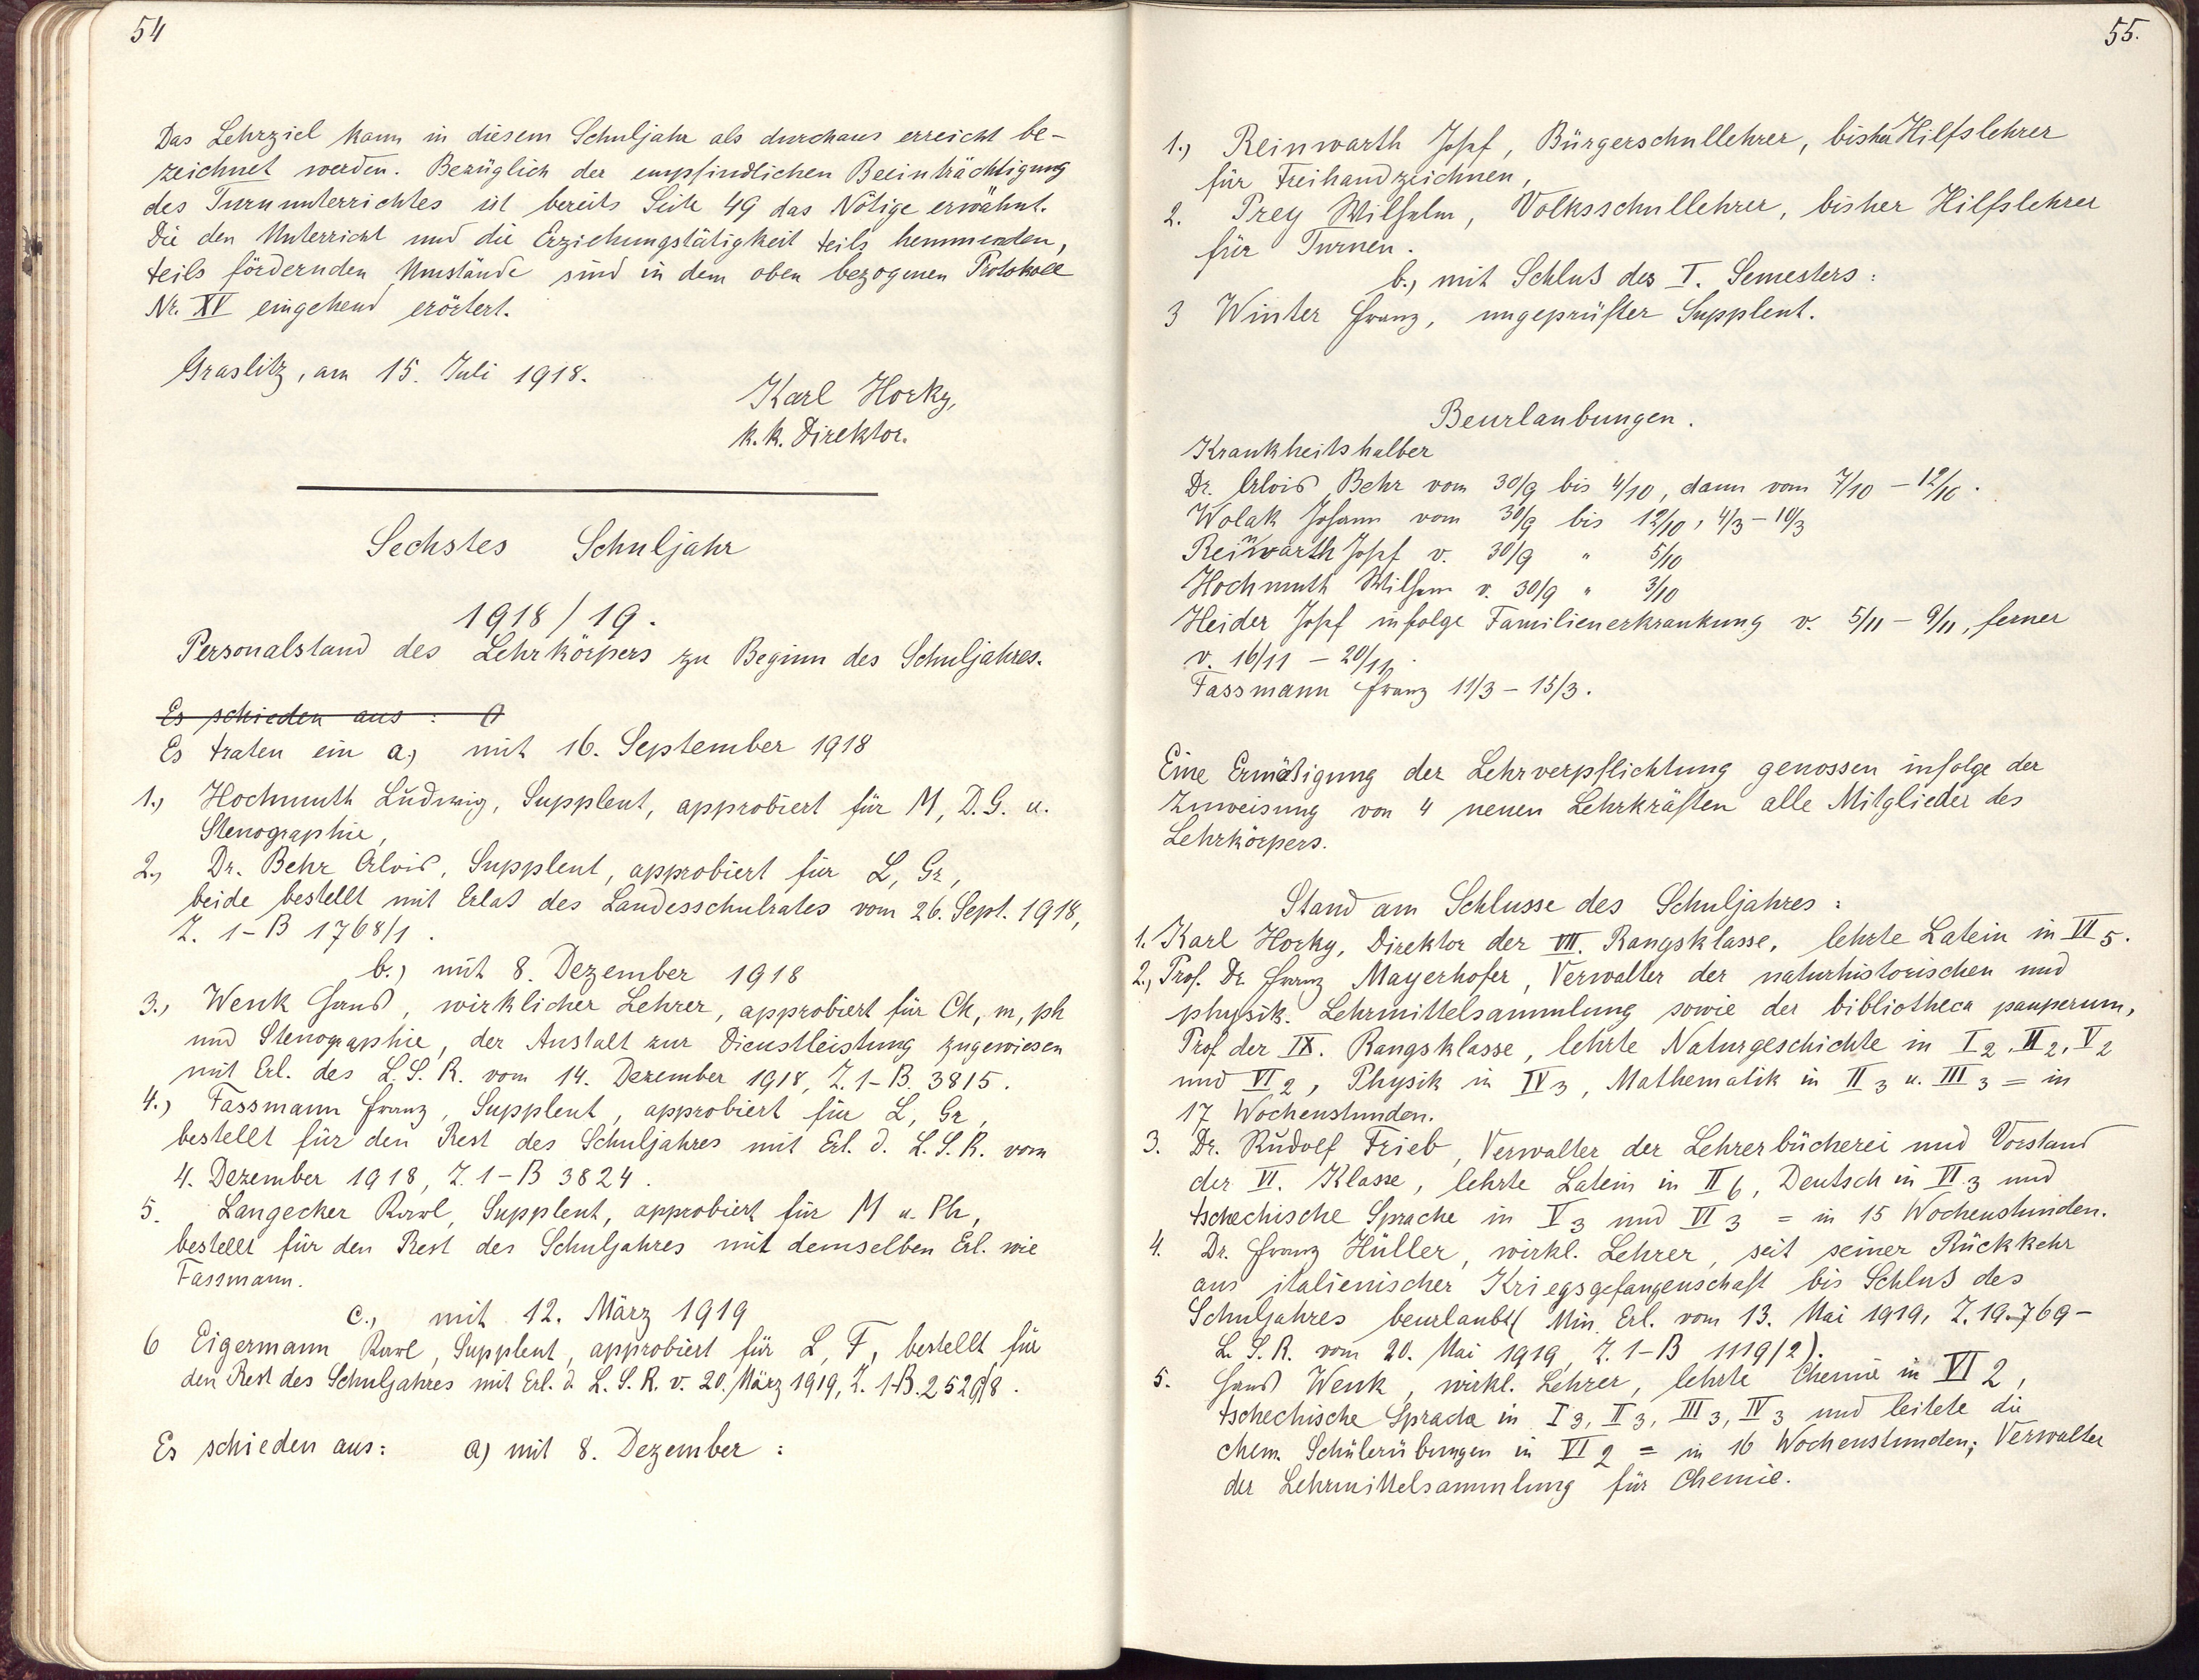 54
Das Lehrziel kann in diesem Schuljahr als durchaus erreicht be-
zeichnet werden. Bezüglich der empfindlichen Beeinträchtigung
des Turnunterrichtes ist bereits Seite 49 das Nötige erwähnt.
Die den Unterricht und die Erziehungstätigkeit teils hemmenden,
teils fördernden Umstände sind in dem oben bezogenen Protokoll
Nr. XV eingehend erörtert.
Graslitz, am 15. Juli 1918.
Karl Horky,
k. k. Direktor.
Sechstes Schuljahr
1918/19.
Personalstand des Lehrkörpers zu Beginn des Schuljahres.
Es schieden aus :
Es traten ein a.) mit 16. September 1918
1.) Hochmuth Ludwig, Supplent, approbiert für M, D.G. u.
Stenographie,
2.) Dr. Behr Alois, Supplent, approbiert für L, Gr,
beide bestellt mit Erlaß des Landesschulrates vom 26. Sept. 1918,
Z. 1-B 1768/1.
b.) mit 8. Dezember 1918
3.) Wenk Hans, wirklicher Lehrer, approbiert für Ch, m, ph
und Stenographie, der Anstalt zur Dienstleistung zugewiesen
mit Erl. des L. S. R. vom 14. Dezember 1918, Z. 1-B. 3815.
4.) Fassmann Franz, Supplent, approbiert für L, Gr,
bestellt für den Rest des Schuljahres mit Erl. d. L. S. R. vom
4. Dezember 1918, Z. 1-B 3824.
5. Langecker Karl, Supplent, approbiert für M u. Ph,
bestellt für den Rest des Schuljahres mit demselben Erl. wie
Fassmann.
c., mit 12. März 1919
6 Eigermann Karl, Supplent, approbiert für L, F, bestellt für
den Rest des Schuljahres mit Erl. d. L. S. R. v. 20. März 1919, Z. 1-B.
Es schieden aus: a) mit 8. Dezember :
55.
1.) Reinwarth Josef, Bürgerschullehrer, bisher Hilfslehrer
für Freihandzeichnen,
2. Prey Wilhelm, Volksschullehrer, bisher Hilfslehrer
für Turnen.
b., mit Schluß des I. Semesters :
3 Winter Franz, ungeprüfter Supplent.
Beurlaubungen.
Krankheitshalber
Dr. Alois Behr vom 30/9 bis 4/10, dann vom 7/10 - 12/10.
Wolak Johann vom 30/9 bis 12/10, 4/3 - 10/3
Reinwarth Josef v. 30/9 " 5/10
Hochmuth Wilhem v. 30/9 " 3/10
Heider Josef infolge Familienerkrankung v. 5/11 - 9/11, ferner
v. 16/11 - 20/11.
Fassmann Franz 11/3 - 15/3.
Eine Ermäßigung der Lehrverpflichtung genossen infolge der
Zuweisung von 4 neuen Lehrkräften alle Mitglieder des
Lehrkörpers.
Stand am Schlusse des Schuljahres :
1. Karl Horky, Direktor der VII. Rangsklasse, lehrte Latein in VI 5.
2., Prof. Dr. Franz Mayerhofer, Verwalter der naturhistorischen und
physik. Lehrmittelsammlung sowie der bibliotheca pauperum,
Prof. der IX. Rangsklasse, lehrte Naturgeschichte in I 2, II 2, V 2
und VI 2, Physik in IV 3, Mathematik in II 3 u. III 3 = in
17 Wochenstunden.
3. Dr. Rudolf Frieb, Verwalter der Lehrerbücherei und Vorstand
der VI. Klasse, lehrte Latein in II 6, Deutsch in VI 3 und
tschechische Sprache in V 3 und VI 3 = in 15 Wochenstunden.
4. Dr. Franz Hüller, wirkl. Lehrer, seit seiner Rückkehr
aus italienischer Kriegsgefangenschaft bis Schluß des
Schuljahres beurlaubt (Min. Erl. vom 13. Mai 1919, Z. 19.769 -
L. S. R. vom 20. Mai 1919, Z. 1-B 1119/2).
5. Hans Wenk, wirkl. Lehrer, lehrte Chemie in VI 2,
tschechische Sprache in I 3, II 3, III 3, IV 3 und leitete die
chem. Schülerübungen in VI 2 = in 16 Wochenstunden; Verwalter
der Lehrmittelsammlung für Chemie.